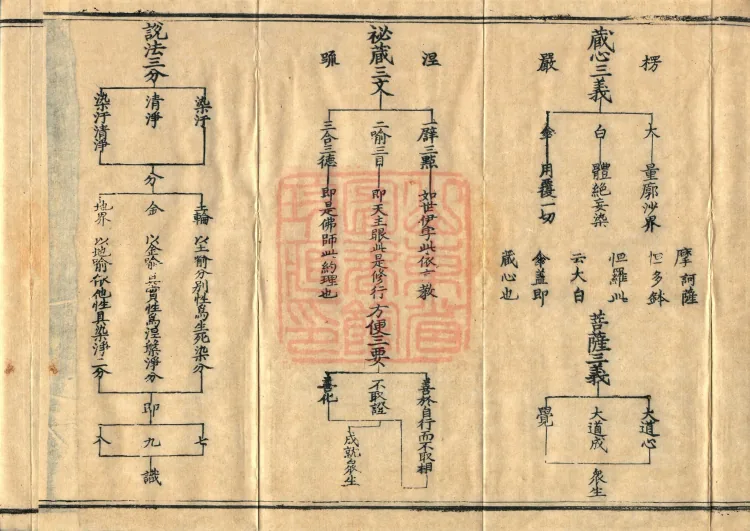 藏心三義
楞
嚴
大 量廓沙界
白 體絕妄染
傘 用覆一切
摩訶薩
怛多鉢
怛羅此
云大白
傘盖即
藏心也
菩薩三義
大道心
大道成
覺
眾生
祕藏三文
涅
一譬三點 如世伊字此依 教
二喻三目 即天主眼此是修行
三合三德 即是佛師此約理也
方便三要
善於自行而不取相
不取證
善化
成就眾生
說法三分
染汙
清淨
染汙清淨
分
土輪 以土喻分別性為生死染分
金 以金喻真實性為涅槃淨分
地界 以地喻依他性具染淨二分
即
七
九
八
識